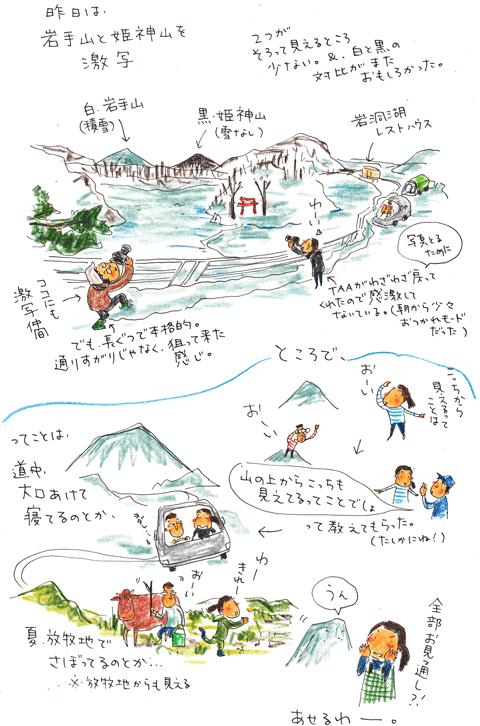 昨日は、
岩手山と姫神山を
激写
2つが
そろって見えるところ
少ない。&、白と黒の
対比がまた
おもしろかった。
白・岩手山
(積雪)
黒・姫神山
(雪なし)
岩洞湖
レストハウス
わーい
写真とる
ために
TAAがわざわざ戻って
くれたので感激して
ないている。(朝から少々
おつかれモード
だった)
ココにも
激写仲間
でも、長ぐつで本格的。
通りすがりじゃなく、狙って来た
感じ。
ところで、
おーい
こっちから
見えるって
ことは
おーい
山の上からこっちも
見えてるってことでしょ
って教えてもらった。
(たしかにね!)
ってことは、
道中、
大口あけて
寝てるのとか、
わー
きれー
おーい
夏・放牧地で
さぼってるのとか…
※放牧地からも見える
うん
全部お見通し?!
あせるわー。